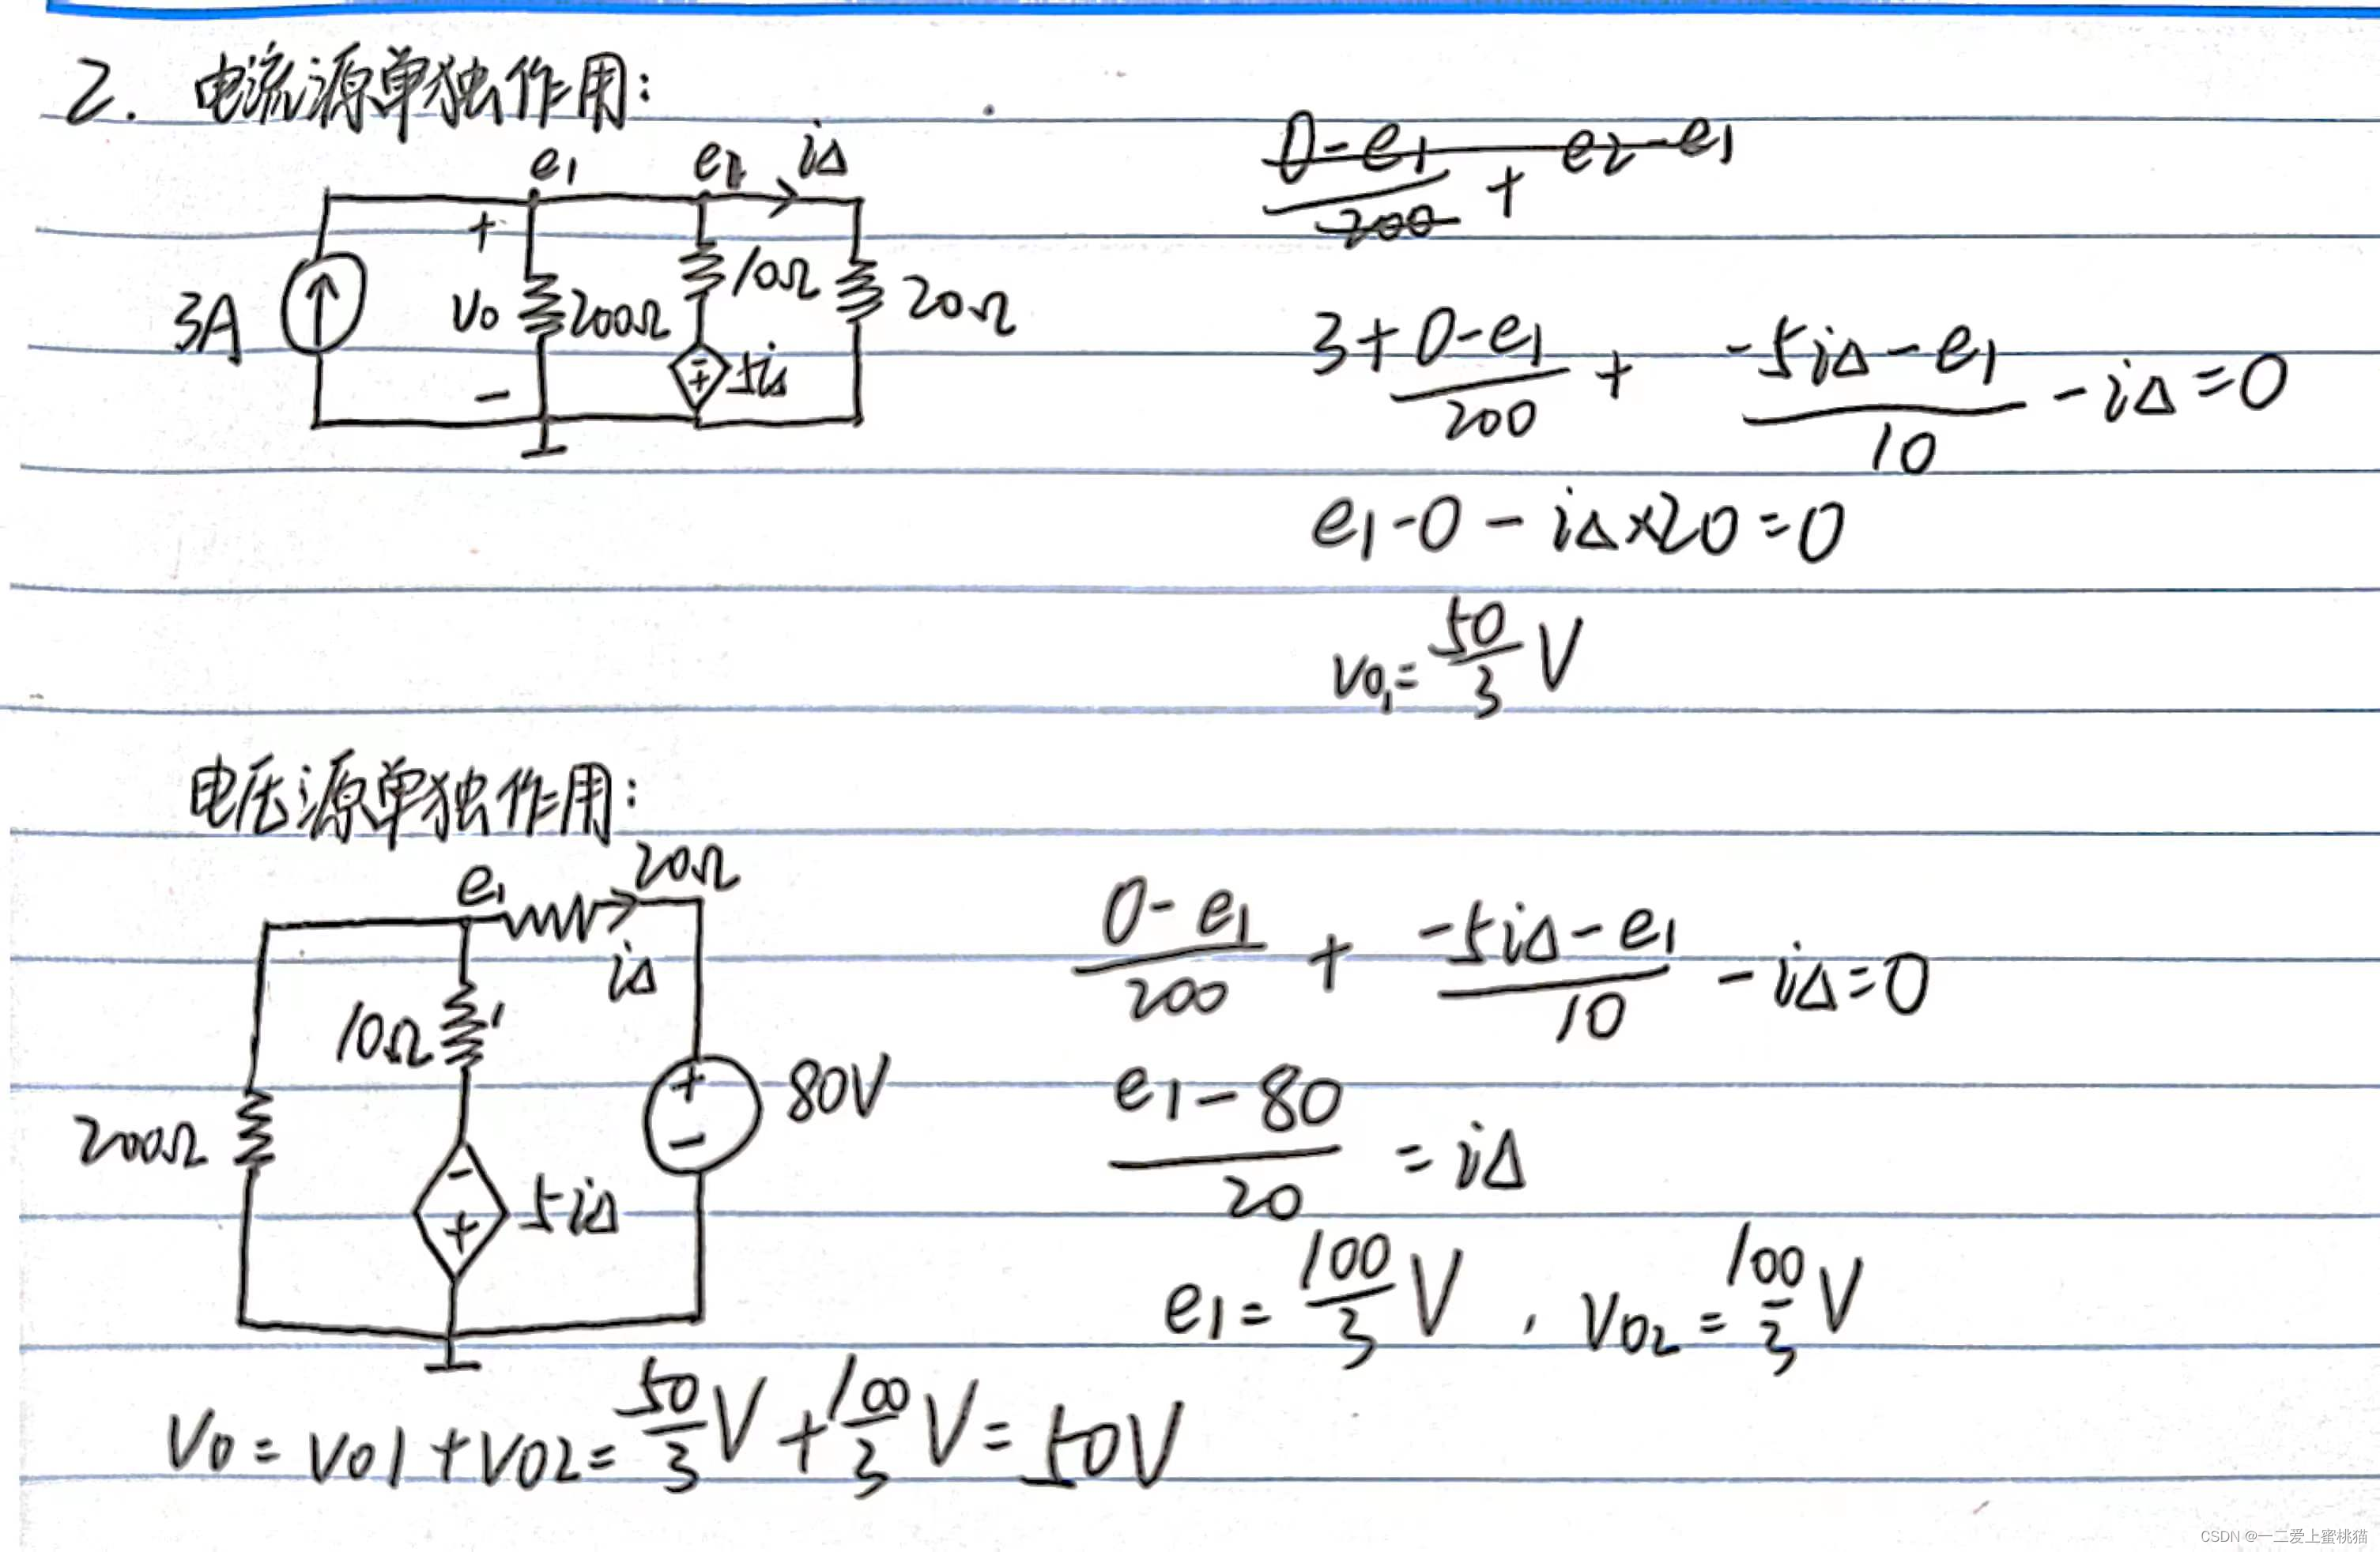 2. 电流源单独作用:
e1 e1 iΔ
3A + v0 - 200Ω 10Ω 5iΔ 20Ω
- +
(0-e1)/200 + e2-e1
3+(0-e1)/200 + (-5iΔ-e1)/10 - iΔ=0
e1-0-iΔ×20=0
v01=50/3 V
电压源单独作用:
e1 20Ω
iΔ
10Ω
200Ω + - 80V
- + 5iΔ
(0-e1)/200 + (-5iΔ-e1)/10 - iΔ=0
(e1-80)/20 = iΔ
e1=100/3 V , v02=100/3 V
v0=v01+v02=50/3 V+100/3 V=50V
CSDN @一二爱上蜜桃猫